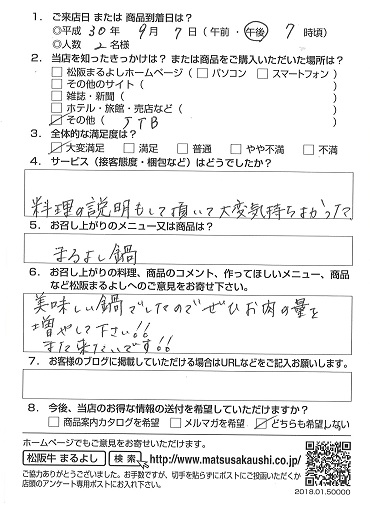 1. ご来店日 または 商品到着日は？
◎平成 30年 9月 7日（午前・午後 7時頃）
◎人数 2名様
2. 当店を知ったきっかけは？ または商品をご購入いただいた場所は？
□松阪まるよしホームページ（□パソコン □スマートフォン）
□その他のサイト（ ）
□雑誌・新聞（ ）
□ホテル・旅館・売店など（ ）
☑その他（ JTB ）
3. 全体的な満足度は？
☑大変満足 □満足 □普通 □やや不満 □不満
4. サービス（接客態度・梱包など）はどうでしたか？
料理の説明もして頂いて大変気持ちよかったで
5. お召し上がりのメニュー又は商品は？
まるよし鍋
6. お召し上がりの料理、商品のコメント、作ってほしいメニュー、商品
など松阪まるよしへのご意見をお寄せ下さい。
美味しい鍋でしたのでぜひお肉の量を
増やして下さい!!
また来たいです!!
7. お客様のブログに掲載していただける場合はURLなどをご記入お願いします。
8. 今後、当店のお得な情報の送付を希望していただけますか？
□商品案内カタログを希望 □メルマガを希望 ☑どちらも希望しない
ホームページでもご意見をお寄せいただけます。
松阪牛 まるよし 検索 http://www.matsusakaushi.co.jp/
ご協力ありがとうございました。お手数ですが、切手を貼らずにポストにご投函いただくか
店頭のアンケート専用ポストにお入れ下さい。
2018.01.50000